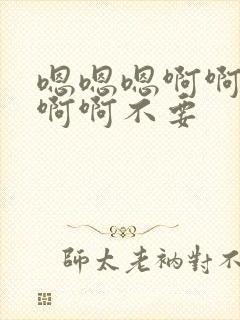 嗯嗯嗯啊啊
啊啊不要
師太老衲對不